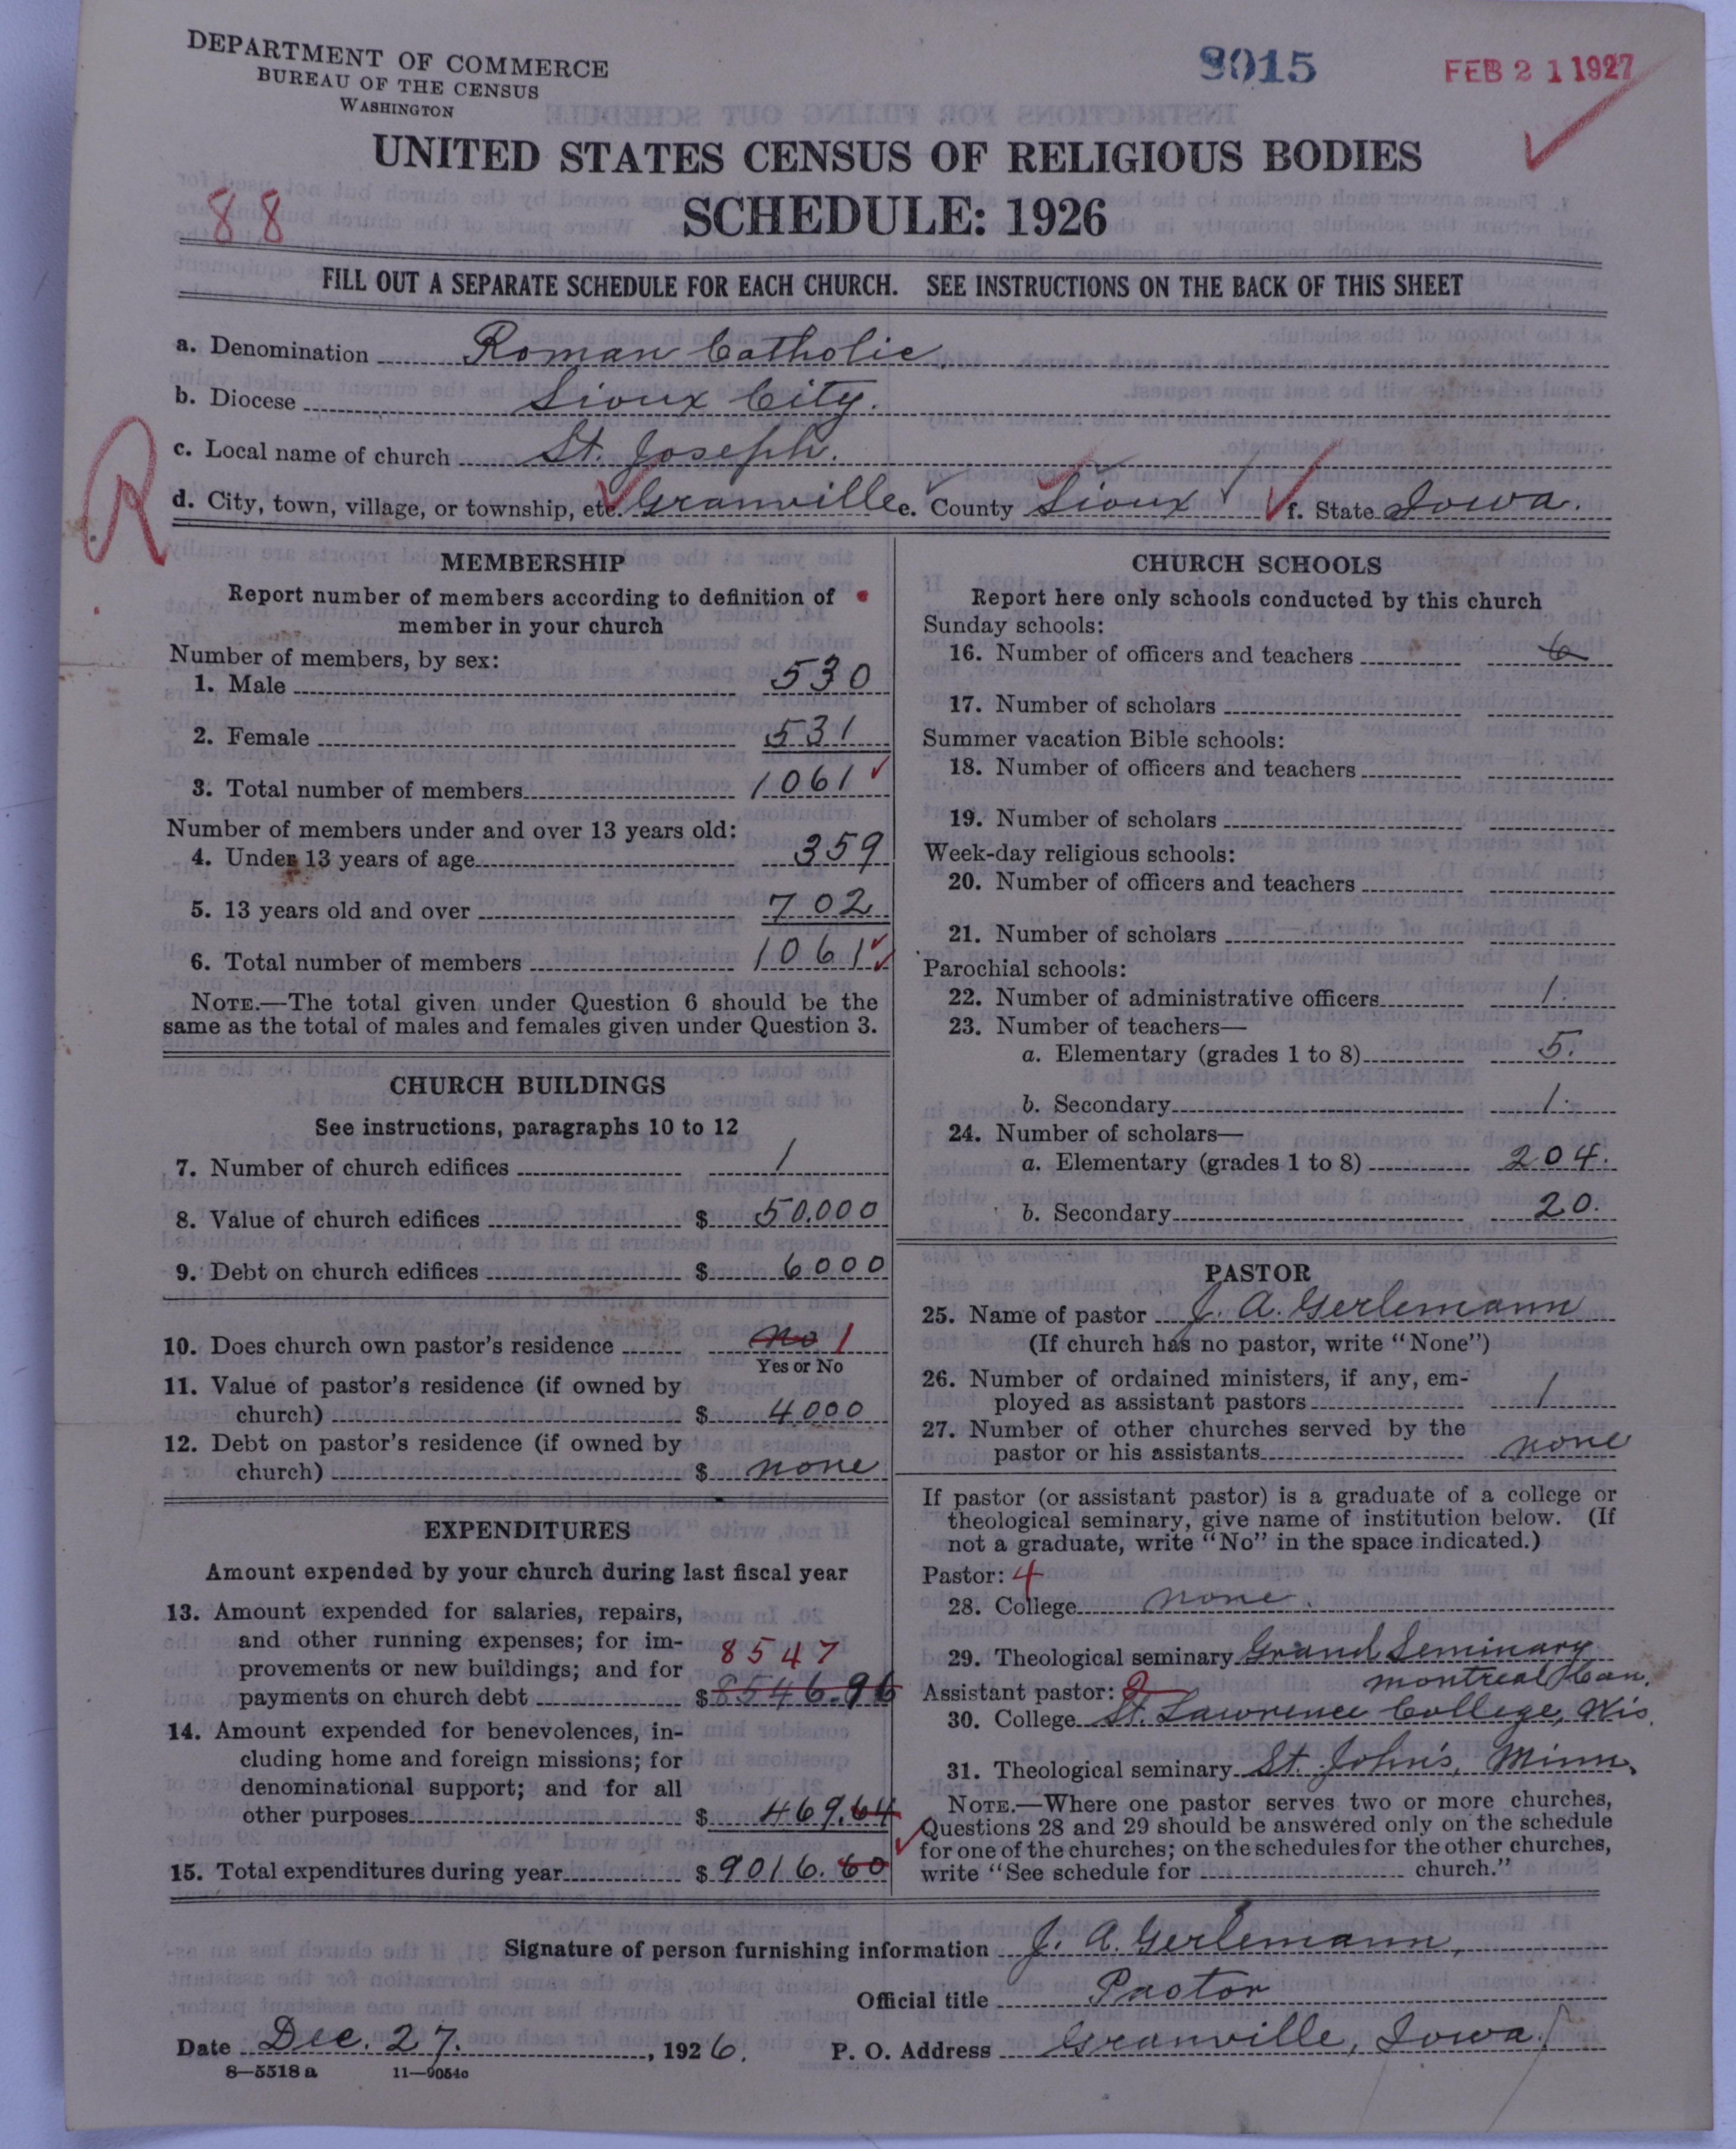 DEPARTMENT OF COMMERCE
BUREAU OF THE CENSUS
WASHINGTON
9015
FEB 21 1927
UNITED STATES CENSUS OF RELIGIOUS BODIES
88
SCHEDULE: 1926
FILL OUT A SEPARATE SCHEDULE FOR EACH CHURCH. SEE INSTRUCTIONS ON THE BACK OF THIS SHEET
a. Denomination Roman Catholic
b. Diocese Sioux City.
R
c. Local name of church St. Joseph.
d. City, town, village, or township, etc. Granville e. County Sioux f. State Iowa.
MEMBERSHIP
Report number of members according to definition of
member in your church
Number of members, by sex:
1. Male 530
2. Female 531
3. Total number of members 1061
Number of members under and over 13 years old:
4. Under 13 years of age 359
5. 13 years old and over 702
6. Total number of members 1061
NOTE.—The total given under Question 6 should be the
same as the total of males and females given under Question 3.
CHURCH BUILDINGS
See instructions, paragraphs 10 to 12
7. Number of church edifices 1
8. Value of church edifices $ 50.000
9. Debt on church edifices $ 6000
10. Does church own pastor's residence no 1
Yes or No
11. Value of pastor's residence (if owned by
church) $ 4000
12. Debt on pastor's residence (if owned by
church) $ none
EXPENDITURES
Amount expended by your church during last fiscal year
13. Amount expended for salaries, repairs,
and other running expenses; for im-
provements or new buildings; and for
8547
payments on church debt $ 8546.96
14. Amount expended for benevolences, in-
cluding home and foreign missions; for
denominational support; and for all
other purposes $ 469.64
15. Total expenditures during year $ 9016.60
CHURCH SCHOOLS
Report here only schools conducted by this church
Sunday schools:
16. Number of officers and teachers 6
17. Number of scholars
Summer vacation Bible schools:
18. Number of officers and teachers
19. Number of scholars
Week-day religious schools:
20. Number of officers and teachers
21. Number of scholars
Parochial schools:
22. Number of administrative officers 1.
23. Number of teachers—
a. Elementary (grades 1 to 8) 5.
b. Secondary 1.
24. Number of scholars—
a. Elementary (grades 1 to 8) 204.
b. Secondary 20.
PASTOR
25. Name of pastor J. A. Gerlemann
(If church has no pastor, write "None")
26. Number of ordained ministers, if any, em-
ployed as assistant pastors 1
27. Number of other churches served by the
pastor or his assistants none
If pastor (or assistant pastor) is a graduate of a college or
theological seminary, give name of institution below. (If
not a graduate, write "No" in the space indicated.)
Pastor: 4
28. College none.
29. Theological seminary Grand Seminary
Montreal Can.
Assistant pastor: 2
30. College St. Lawrence College, Wis.
31. Theological seminary St. John's, Minn.
NOTE.—Where one pastor serves two or more churches,
Questions 28 and 29 should be answered only on the schedule
for one of the churches; on the schedules for the other churches,
write "See schedule for church."
Signature of person furnishing information J. A. Gerlemann,
Official title Pastor
Date Dec. 27. , 1926. P. O. Address Granville, Iowa.
8—5518 a 11—9054c